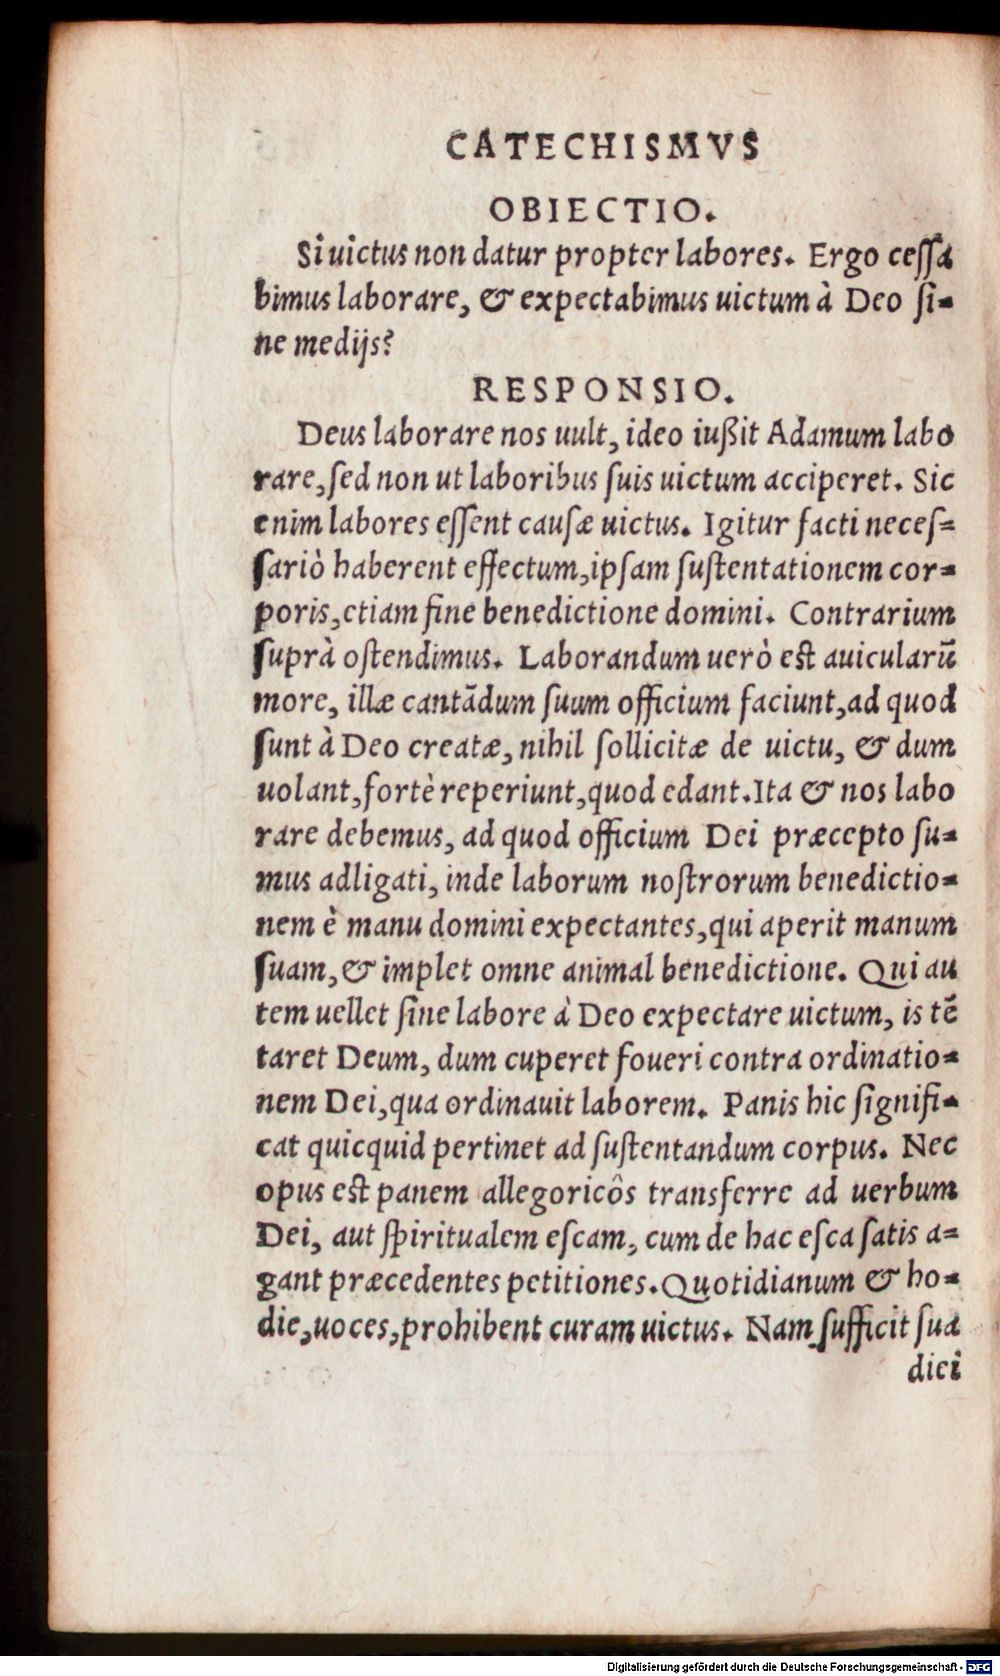 CATECHISMVS
OBIECTIO.
Si uictus non datur propter labores. Ergo ceſſa
bimus laborare, & expectabimus uictum à Deo ſi-
ne medijs?
RESPONSIO.
Deus laborare nos uult, ideo iußit Adamum labo
rare, ſed non ut laboribus ſuis uictum acciperet. Sic
enim labores eſſent cauſæ uictus. Igitur facti neceſ-
ſariò haberent effectum, ipſam ſuſtentationem cor-
poris, etiam ſine benedictione domini. Contrarium
ſuprà oſtendimus. Laborandum uerò est auicularū
more, illæ cantādum ſuum officium faciunt, ad quod
ſunt à Deo creatæ, nihil ſollicitæ de uictu, & dum
uolant, fortè reperiunt, quod edant. Ita & nos labo
rare debemus, ad quod officium Dei præcepto ſu-
mus adligati, inde laborum noſtrorum benedictio-
nem è manu domini expectantes, qui aperit manum
ſuam, & implet omne animal benedictione. Qui au
tem uellet ſine labore à Deo expectare uictum, is tē
taret Deum, dum cuperet foueri contra ordinatio-
nem Dei, qua ordinauit laborem. Panis hic ſignifi-
cat quicquid pertinet ad ſuſtentandum corpus. Nec
opus est panem allegoricôs transferre ad uerbum
Dei, aut ſpiritualem eſcam, cum de hac eſca ſatis a-
gant præcedentes petitiones. Quotidianum & ho-
die, uoces, prohibent curam uictus. Nam ſufficit ſua
diei
Digitalisierung gefördert durch die Deutsche Forschungsgemeinschaft - DFG